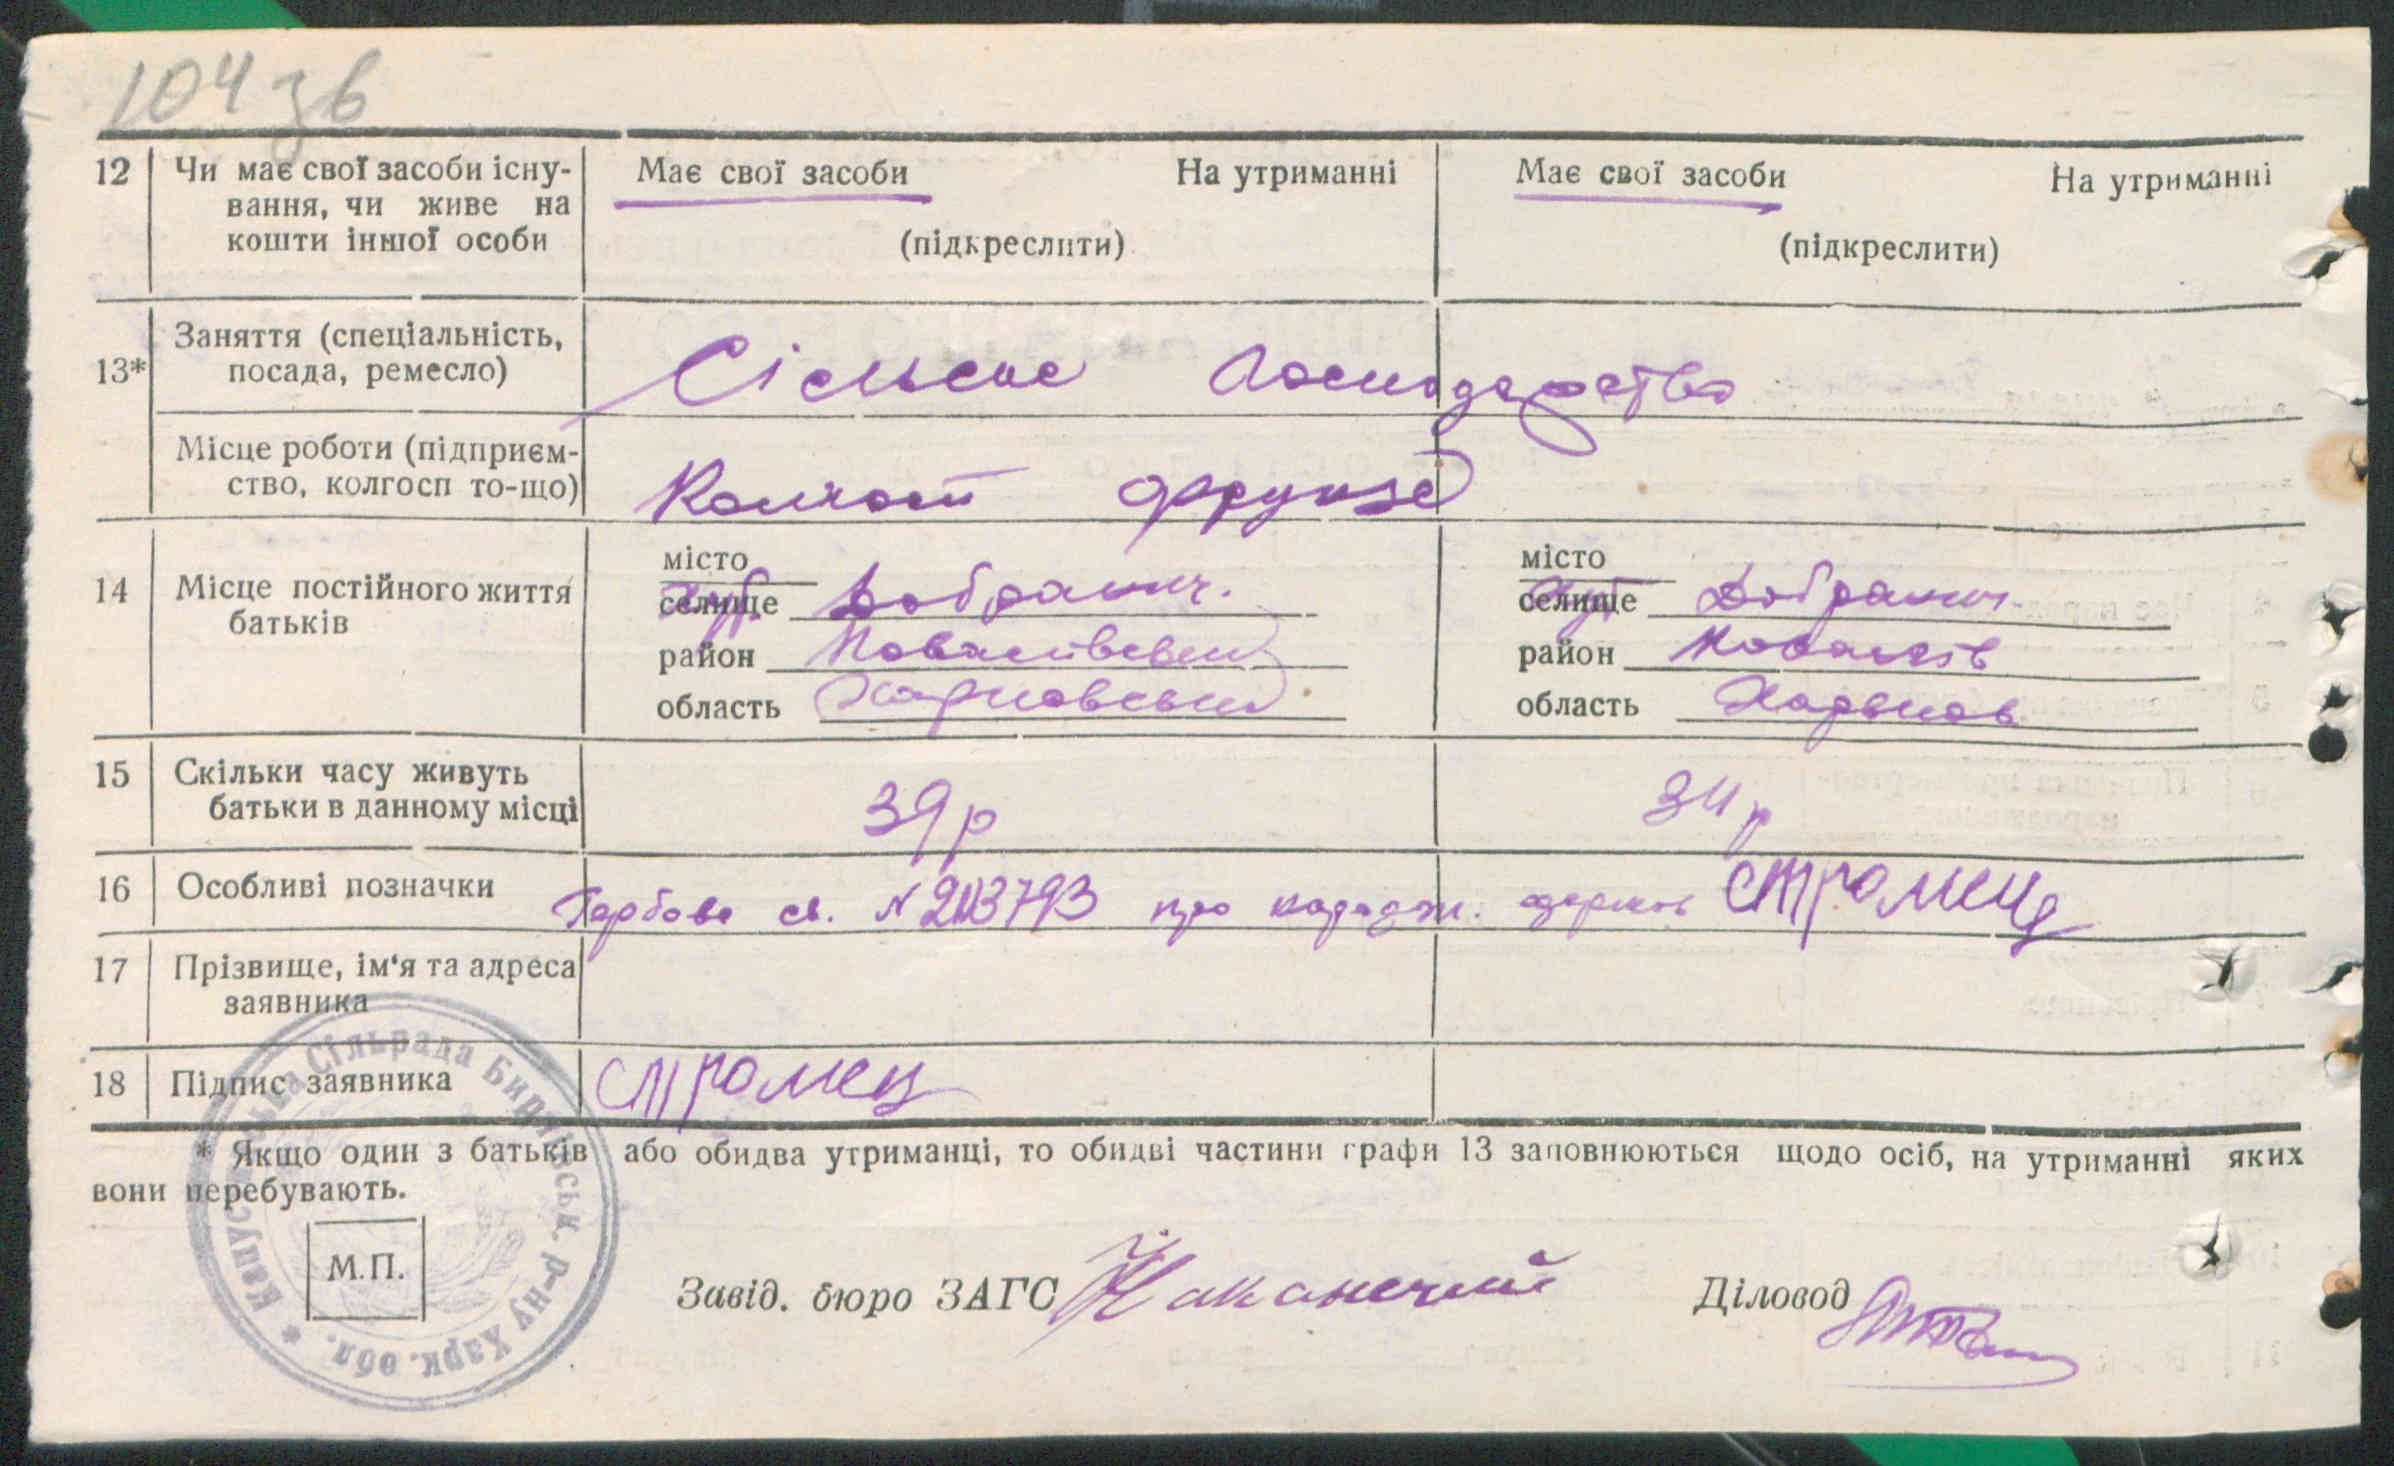 104 зв
12 Чи має свої засоби існу- Має свої засоби На утриманні Має свої засоби На утриманні
вання, чи живе на
кошти іншої особи (підкреслити) (підкреслити)
13* Заняття (спеціальність,
посада, ремесло) Сільське господарство
Місце роботи (підприєм-
ство, колгосп то-що) Колгосп Фрунзе
14 Місце постійного життя
батьків
місто місто
селище селище
район район
область область Харьков
15 Скільки часу живуть
батьки в данному місці 39 р 34 р
16 Особливі позначки Гербове св. № про народж. СТРОМЕЦ
17 Прізвище, ім'я та адреса
заявника
18 Підпис заявника СТРОМЕЦ
* Якщо один з батьків або обидва утриманці, то обидві частини графи 13 заповнюються щодо осіб, на утриманні яких
вони перебувають.
М.П.
Завід. бюро ЗАГС Діловод
Сільрада р-ну Харк. обл. *